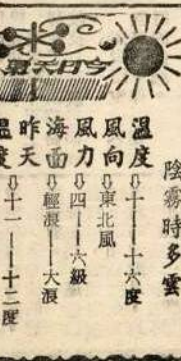 今日天氣
陰霧時多雲
溫度⇨十一——十六度
風向⇨東北風
風力⇨四——六級
海面⇨輕浪——大浪
昨天
溫度⇨十一——十二度